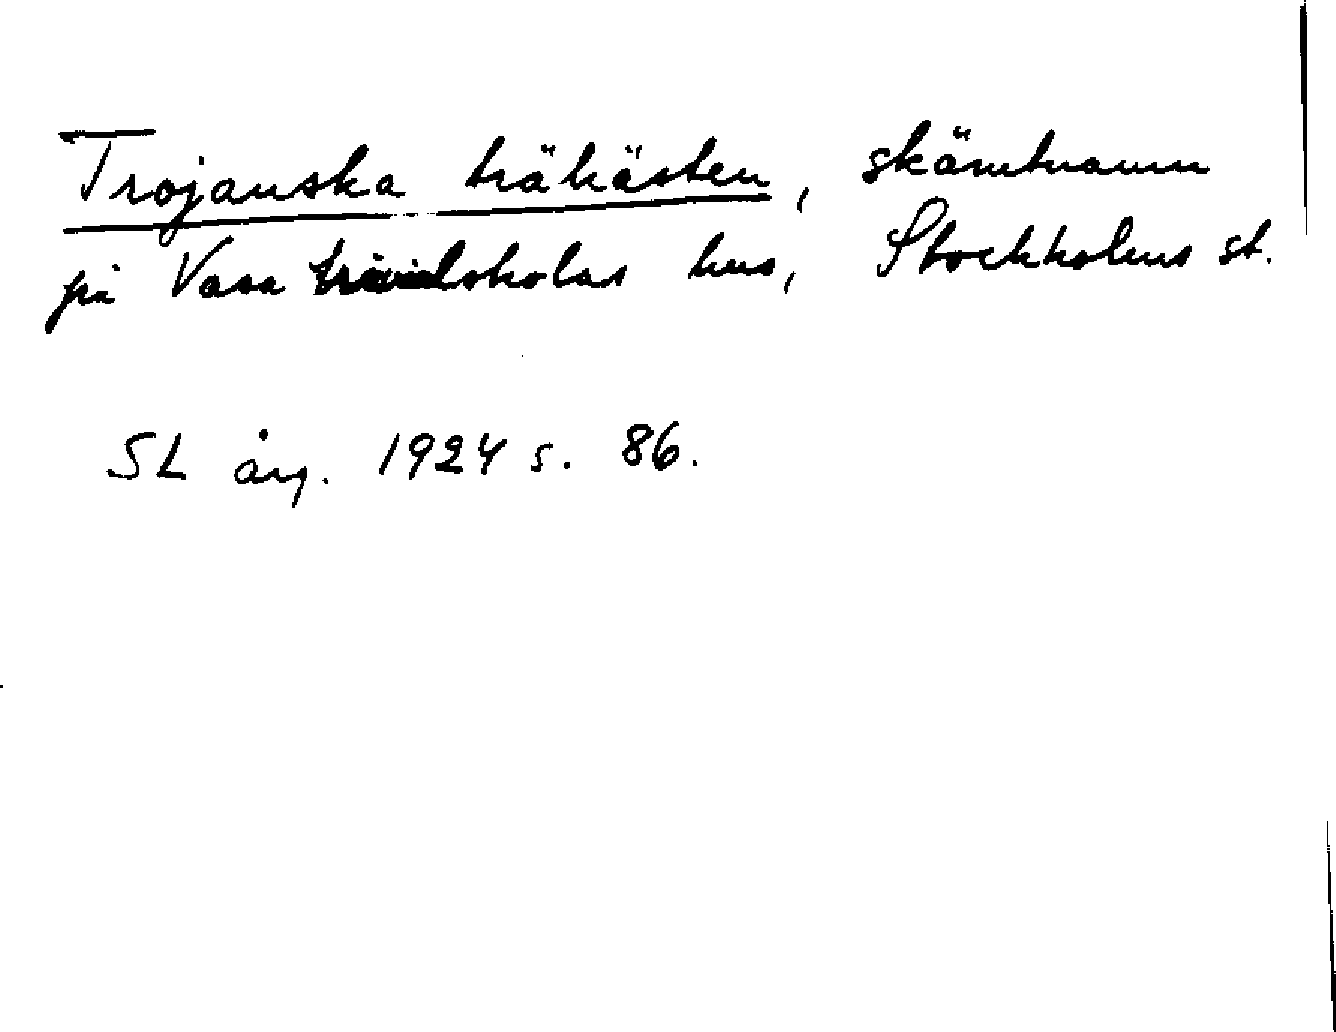 Trojanska trähästen, skämtnamn
på Vasa trivialskolas hus, Stockholms st.
SL årg. 1924 s. 86.